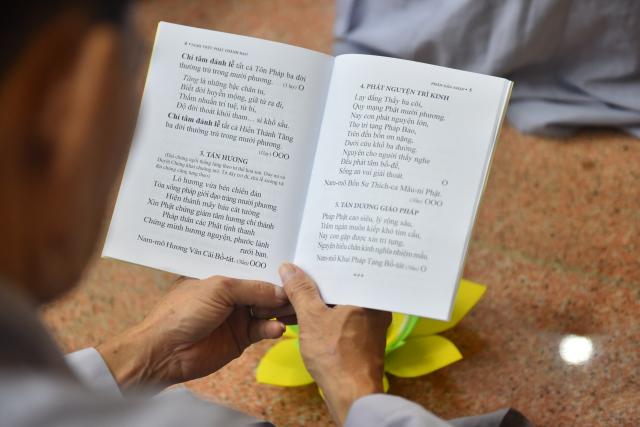 4 • NGHI THỨC PHẬT THÀNH ĐẠO
Chí tâm đảnh lễ tất cả Tôn Pháp ba đời
thường trú trong mười phương. (1 lạy) O
Tăng là những bậc chân tu,
Biết đời huyễn mộng, giã từ ra đi,
Thấm nhuần trí tuệ, từ bi,
Độ đời thoát khỏi tham... si khổ sầu.
Chí tâm đảnh lễ tất cả Hiền Thánh Tăng
ba đời thường trú trong mười phương.
(1 lạy) OOO
3. TÁN HƯƠNG
Lò hương vừa bén chiên đàn
Tỏa xông pháp giới đạo tràng mười phương
Hiện thành mây báu cát tường
Xin Phật chứng giám tâm hương chí thành
Pháp thân các Phật tịnh thanh
Chứng minh hương nguyện, phước lành
rưới ban.
Nam-mô Hương Vân Cái Bồ-tát. (3 lần) OOO
PHẦN DẪN NHẬP • 5
4. PHÁT NGUYỆN TRÌ KINH
Lạy đấng Thầy ba cõi,
Quy mạng Phật mười phương.
Nay con phát nguyện lớn,
Thọ trì tạng Pháp Bảo,
Trên đền bốn ơn nặng,
Dưới cứu khổ ba đường.
Nguyện cho người thấy nghe
Đều phát tâm bồ-đề,
Sống an vui giải thoát. O
Nam-mô Bổn Sư Thích-ca Mâu-ni Phật.
(3 lần) OOO
5. TÁN DƯƠNG GIÁO PHÁP
Pháp Phật cao siêu, lý rộng sâu,
Trăm ngàn muôn kiếp khó tìm cầu,
Nay con gặp được xin trì tụng,
Nguyện hiểu chân kinh nghĩa nhiệm mầu.
Nam-mô Khai Pháp Tạng Bồ-tát. (3 lần) O
***